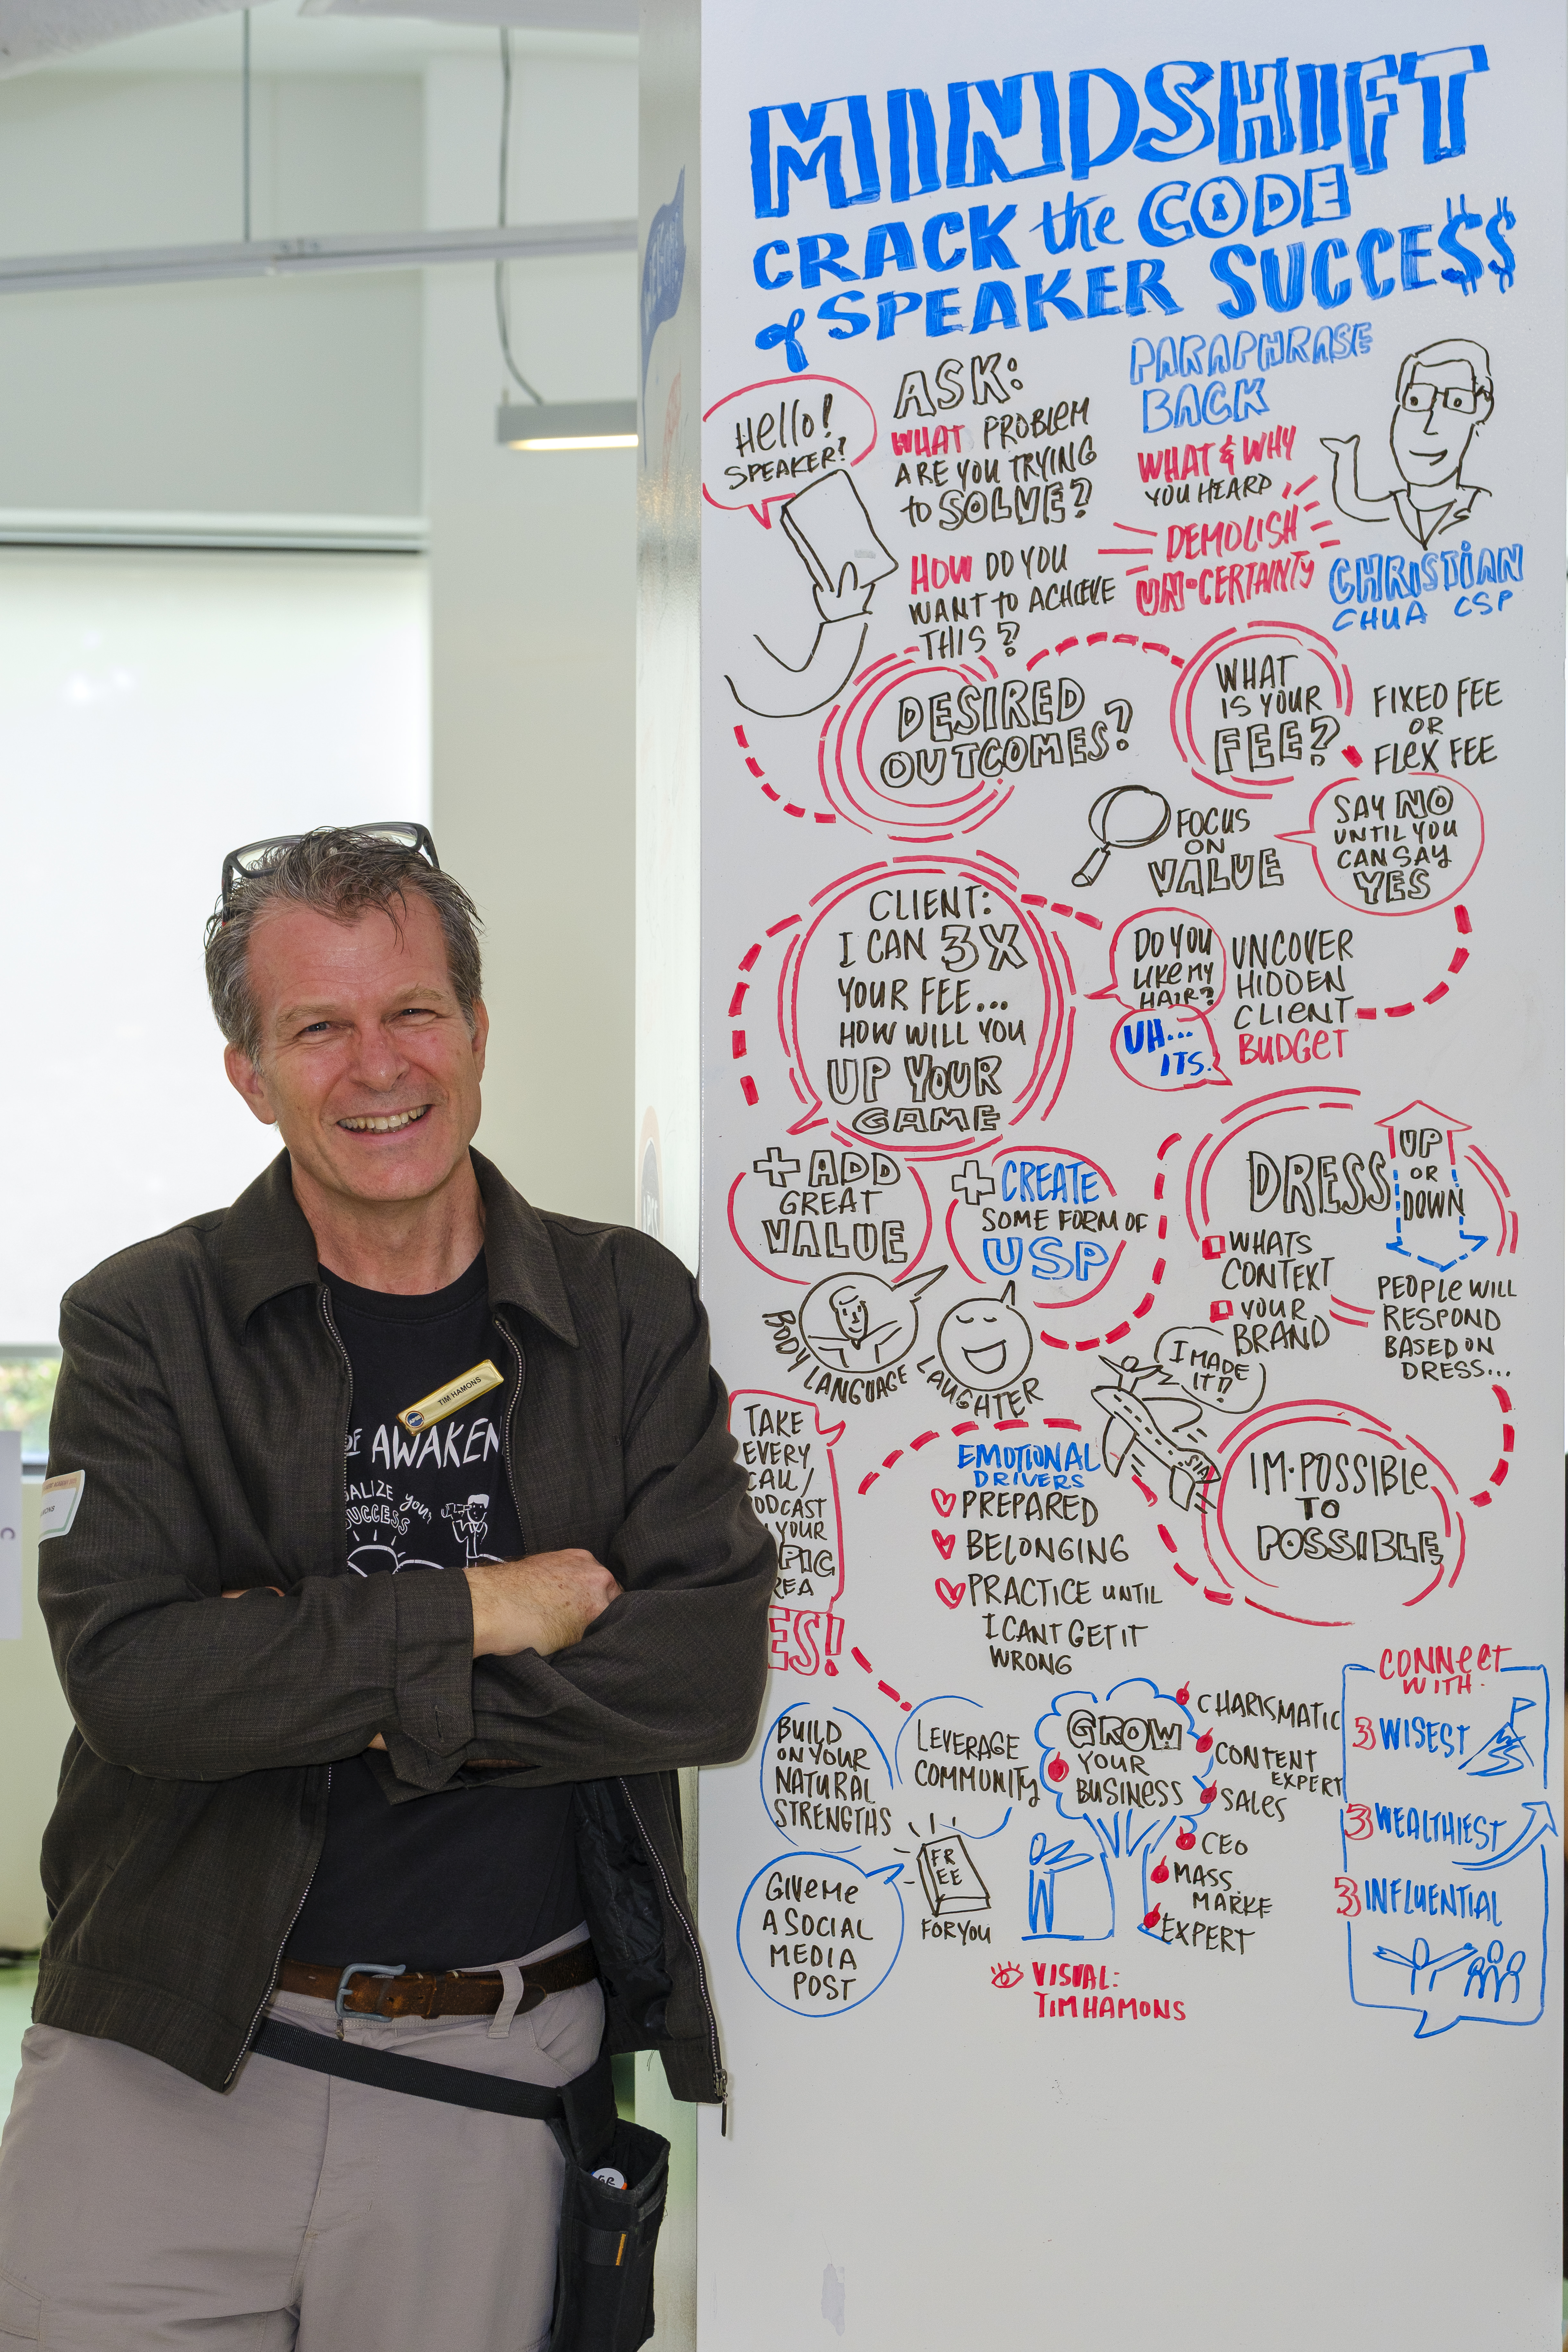 MINDSHIFT
CRACK the CODE
of SPEAKER SUCCE$$
Hello!
SPEAKER?
ASK:
WHAT PROBLEM
ARE YOU TRYING
to SOLVE?
HOW DO YOU
WANT to ACHIEVE
THIS?
PARAPHRASE
BACK
WHAT & WHY
YOU HEARD
DEMOLISH
UN•CERTAINTY
CHRISTIAN
CHUA CSP
DESIRED
OUTCOMES?
WHAT
IS YOUR
FEE?
FIXED FEE
OR
FLEX FEE
FOCUS
ON
VALUE
SAY NO
UNTIL YOU
CAN SAY
YES
CLIENT:
I CAN 3X
YOUR FEE...
HOW WILL YOU
UP YOUR
GAME
DO YOU
LIKE MY
HAIR?
UH...
ITS.
UNCOVER
HIDDEN
CLIENT
BUDGET
+ ADD
GREAT
VALUE
+ CREATE
SOME FORM OF
USP
BODY LANGUAGE
LAUGHTER
DRESS
UP
OR
DOWN
WHATS
CONTEXT
YOUR
BRAND
PEOPLE WILL
RESPOND
BASED ON
DRESS...
I MADE
IT!!
SIA
IM•POSSIBLE
TO
POSSIBLE
TAKE
EVERY
CALL/
ODCAST
YOUR
PIC
REA
ES!
EMOTIONAL
DRIVERS
PREPARED
BELONGING
PRACTICE UNTIL
I CANT GET IT
WRONG
BUILD
ON YOUR
NATURAL
STRENGTHS
LEVERAGE
COMMUNITY
GROW
YOUR
BUSINESS
CHARISMATIC
CONTENT
EXPERT
SALES
CEO
MASS
MARKE
EXPERT
CONNECT
WITH
3 WISEST
3 WEALTHIEST
3 INFLUENTIAL
GIVE ME
A SOCIAL
MEDIA
POST
FR
EE
FOR YOU
VISUAL:
TIM HAMONS
TIM HAMONS
OF AWAKEN
ALIZE your
SUCCESS